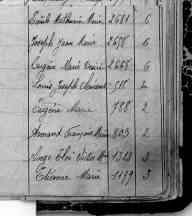 Mathurin Marie 2681 6
Joseph Jean Marie 2678 6
Eugène Marie Désiré 2668 6
Louis Joseph 817 2
Eugène Marie 788 2
Armand François Marie 803 2
Ange Eloi Victor 1313 3
Etienne Marie 1179 3